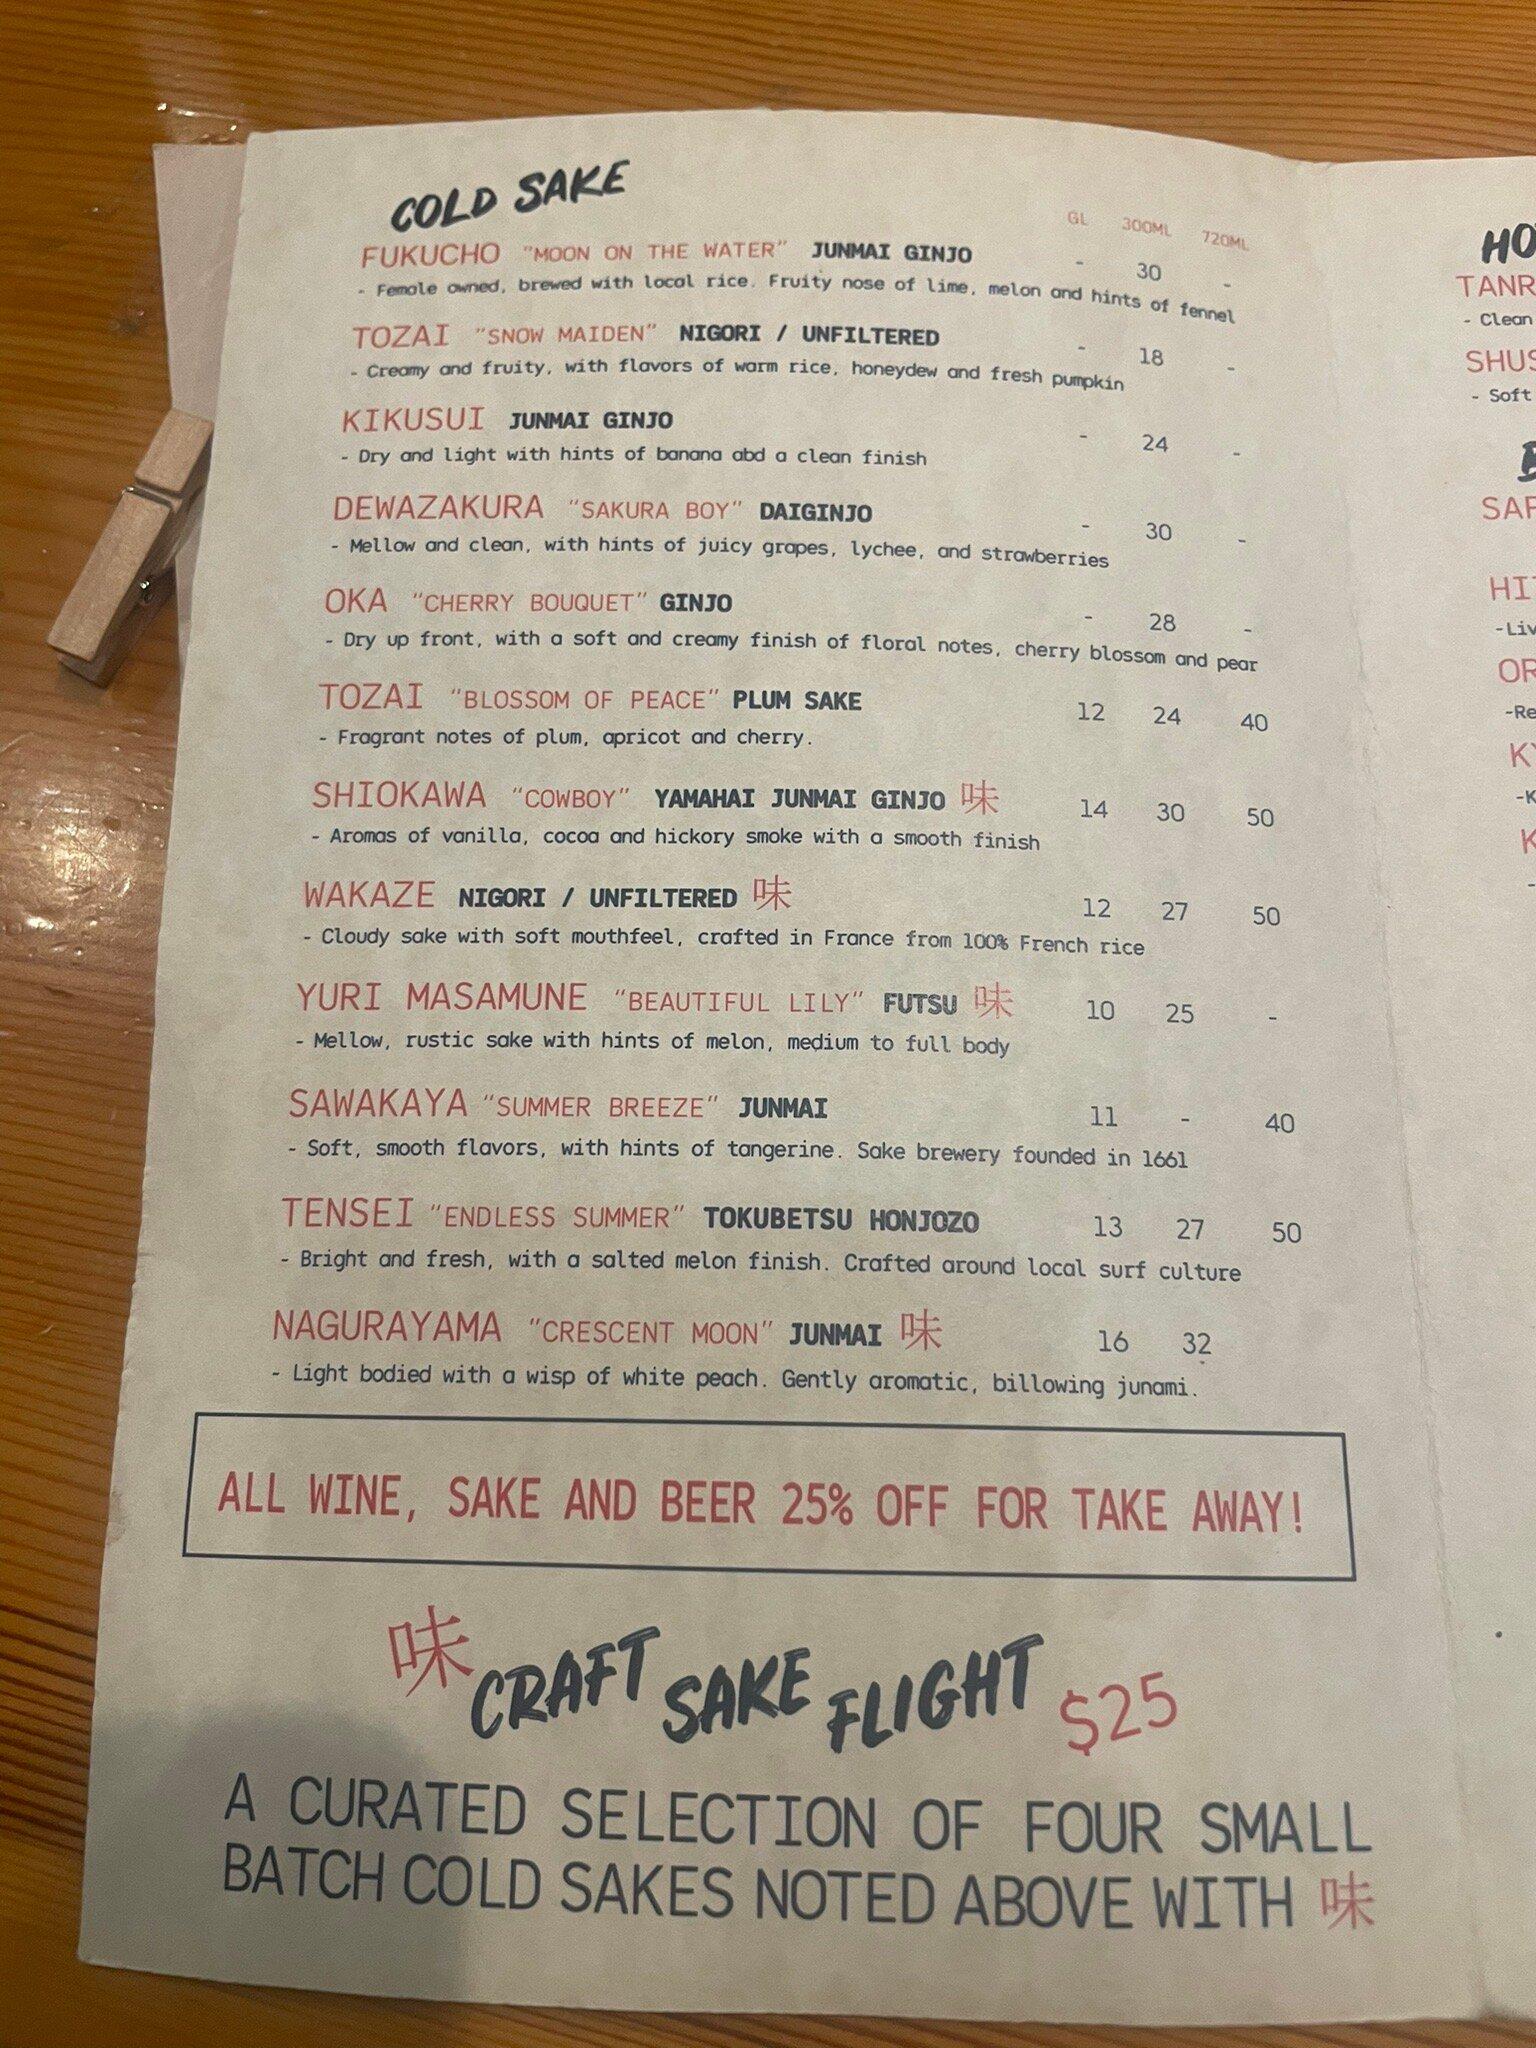 COLD SAKE
GL 300ML 720ML
FUKUCHO "MOON ON THE WATER" JUNMAI GINJO - 30 -
- Female owned, brewed with local rice. Fruity nose of lime, melon and hints of fennel
TOZAI "SNOW MAIDEN" NIGORI / UNFILTERED - 18 -
- Creamy and fruity, with flavors of warm rice, honeydew and fresh pumpkin
KIKUSUI JUNMAI GINJO - 24 -
- Dry and light with hints of banana abd a clean finish
DEWAZAKURA "SAKURA BOY" DAIGINJO - 30 -
- Mellow and clean, with hints of juicy grapes, lychee, and strawberries
OKA "CHERRY BOUQUET" GINJO - 28 -
- Dry up front, with a soft and creamy finish of floral notes, cherry blossom and pear
TOZAI "BLOSSOM OF PEACE" PLUM SAKE 12 24 40
- Fragrant notes of plum, apricot and cherry.
SHIOKAWA "COWBOY" YAMAHAI JUNMAI GINJO 味 14 30 50
- Aromas of vanilla, cocoa and hickory smoke with a smooth finish
WAKAZE NIGORI / UNFILTERED 味 12 27 50
- Cloudy sake with soft mouthfeel, crafted in France from 100% French rice
YURI MASAMUNE "BEAUTIFUL LILY" FUTSU 味 10 25 -
- Mellow, rustic sake with hints of melon, medium to full body
SAWAKAYA "SUMMER BREEZE" JUNMAI 11 - 40
- Soft, smooth flavors, with hints of tangerine. Sake brewery founded in 1661
TENSEI "ENDLESS SUMMER" TOKUBETSU HONJOZO 13 27 50
- Bright and fresh, with a salted melon finish. Crafted around local surf culture
NAGURAYAMA "CRESCENT MOON" JUNMAI 味 16 32
- Light bodied with a wisp of white peach. Gently aromatic, billowing junami.
ALL WINE, SAKE AND BEER 25% OFF FOR TAKE AWAY!
味 CRAFT SAKE FLIGHT $25
A CURATED SELECTION OF FOUR SMALL
BATCH COLD SAKES NOTED ABOVE WITH 味
HO
TANR
- Clean
SHUS
- Soft
SAP
HIT
-Liv
OR
-Re
KY
-K
K